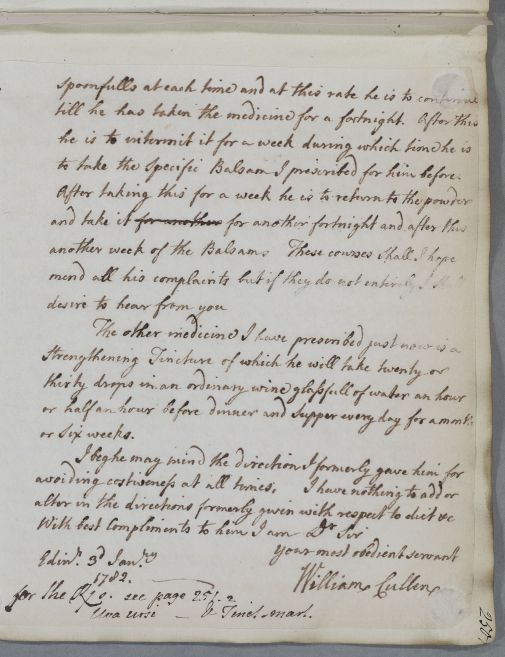 spoonfulls at each time and at this rate he is to continue
till he has taken the medicine for a fortnight. After this
he is to intermit it for a week during which time he is
to take the Specific Balsam I prescribed for him before.
After taking this for a week he is to return to the powder
and take it for another for another fortnight and after this
another week of the Balsam. These courses shall I hope
mend all his complaints but if they do not entirely I shall
desire to hear from you
The other medicine I have prescribed just now is a
Strengthening Tincture of which he will take twenty or
thirty drops in an ordinary wine glassfull of water an hour
or half an hour before dinner and supper every day for a month
or six weeks.
I beg he may mind the direction I formerly gave him for
avoiding costiveness at all times. I have nothing to add or
alter in the directions formerly given with respect to diet &c
With best Compliments to him I am Dr Sir
Your most obedient servant
William Cullen
Edinr. 3d Janry
1782.
for the see page 251.2
Uva ursi — & Tinct. mart.